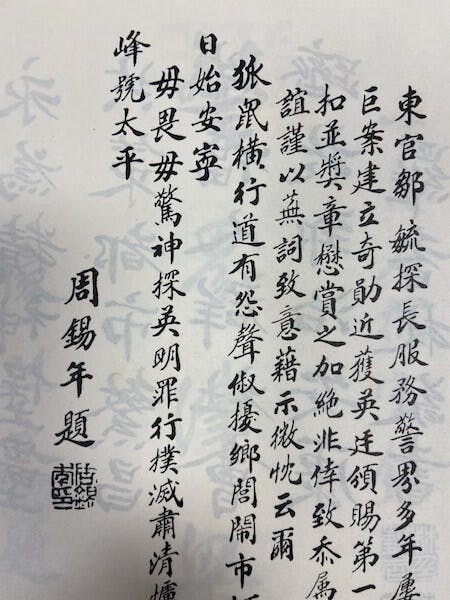 東官鄒毓探長服務警界多年屢
巨案建立奇勛近獲英廷頒賜第一
扣並奬章懋賞之加絶非倖致忝属
誼謹以蕪詞致意藉示微忱云爾
狐鼠橫行道有怨聲俶擾鄉閭鬧市
日始安寧
毋畏毋驚神探英明罪行撲滅肅清
峰號太平
周錫年題